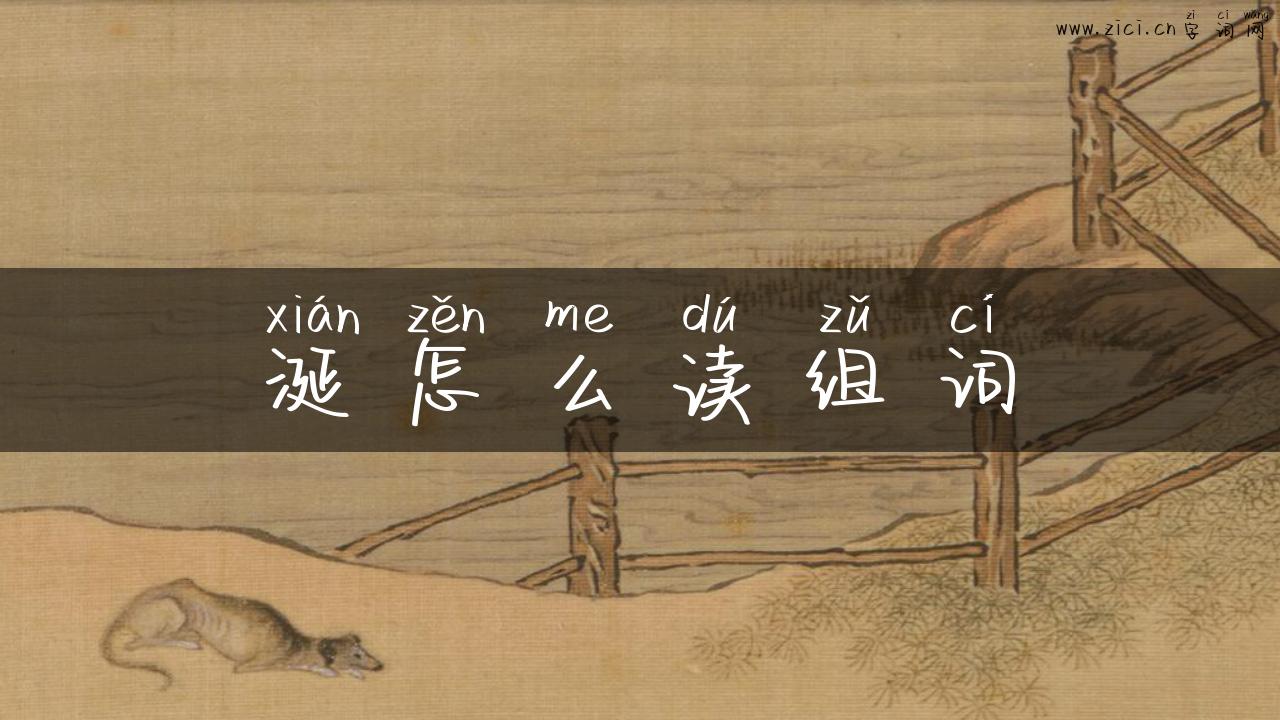 zi ci wang
www.zici.cn 字词网
xián zěn me dú zǔ cí
涎怎么读组词